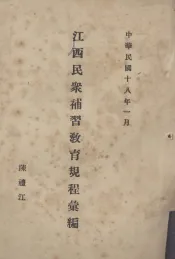 中華民國十八年一月
江西民衆補習教育規程彙編
陳禮江